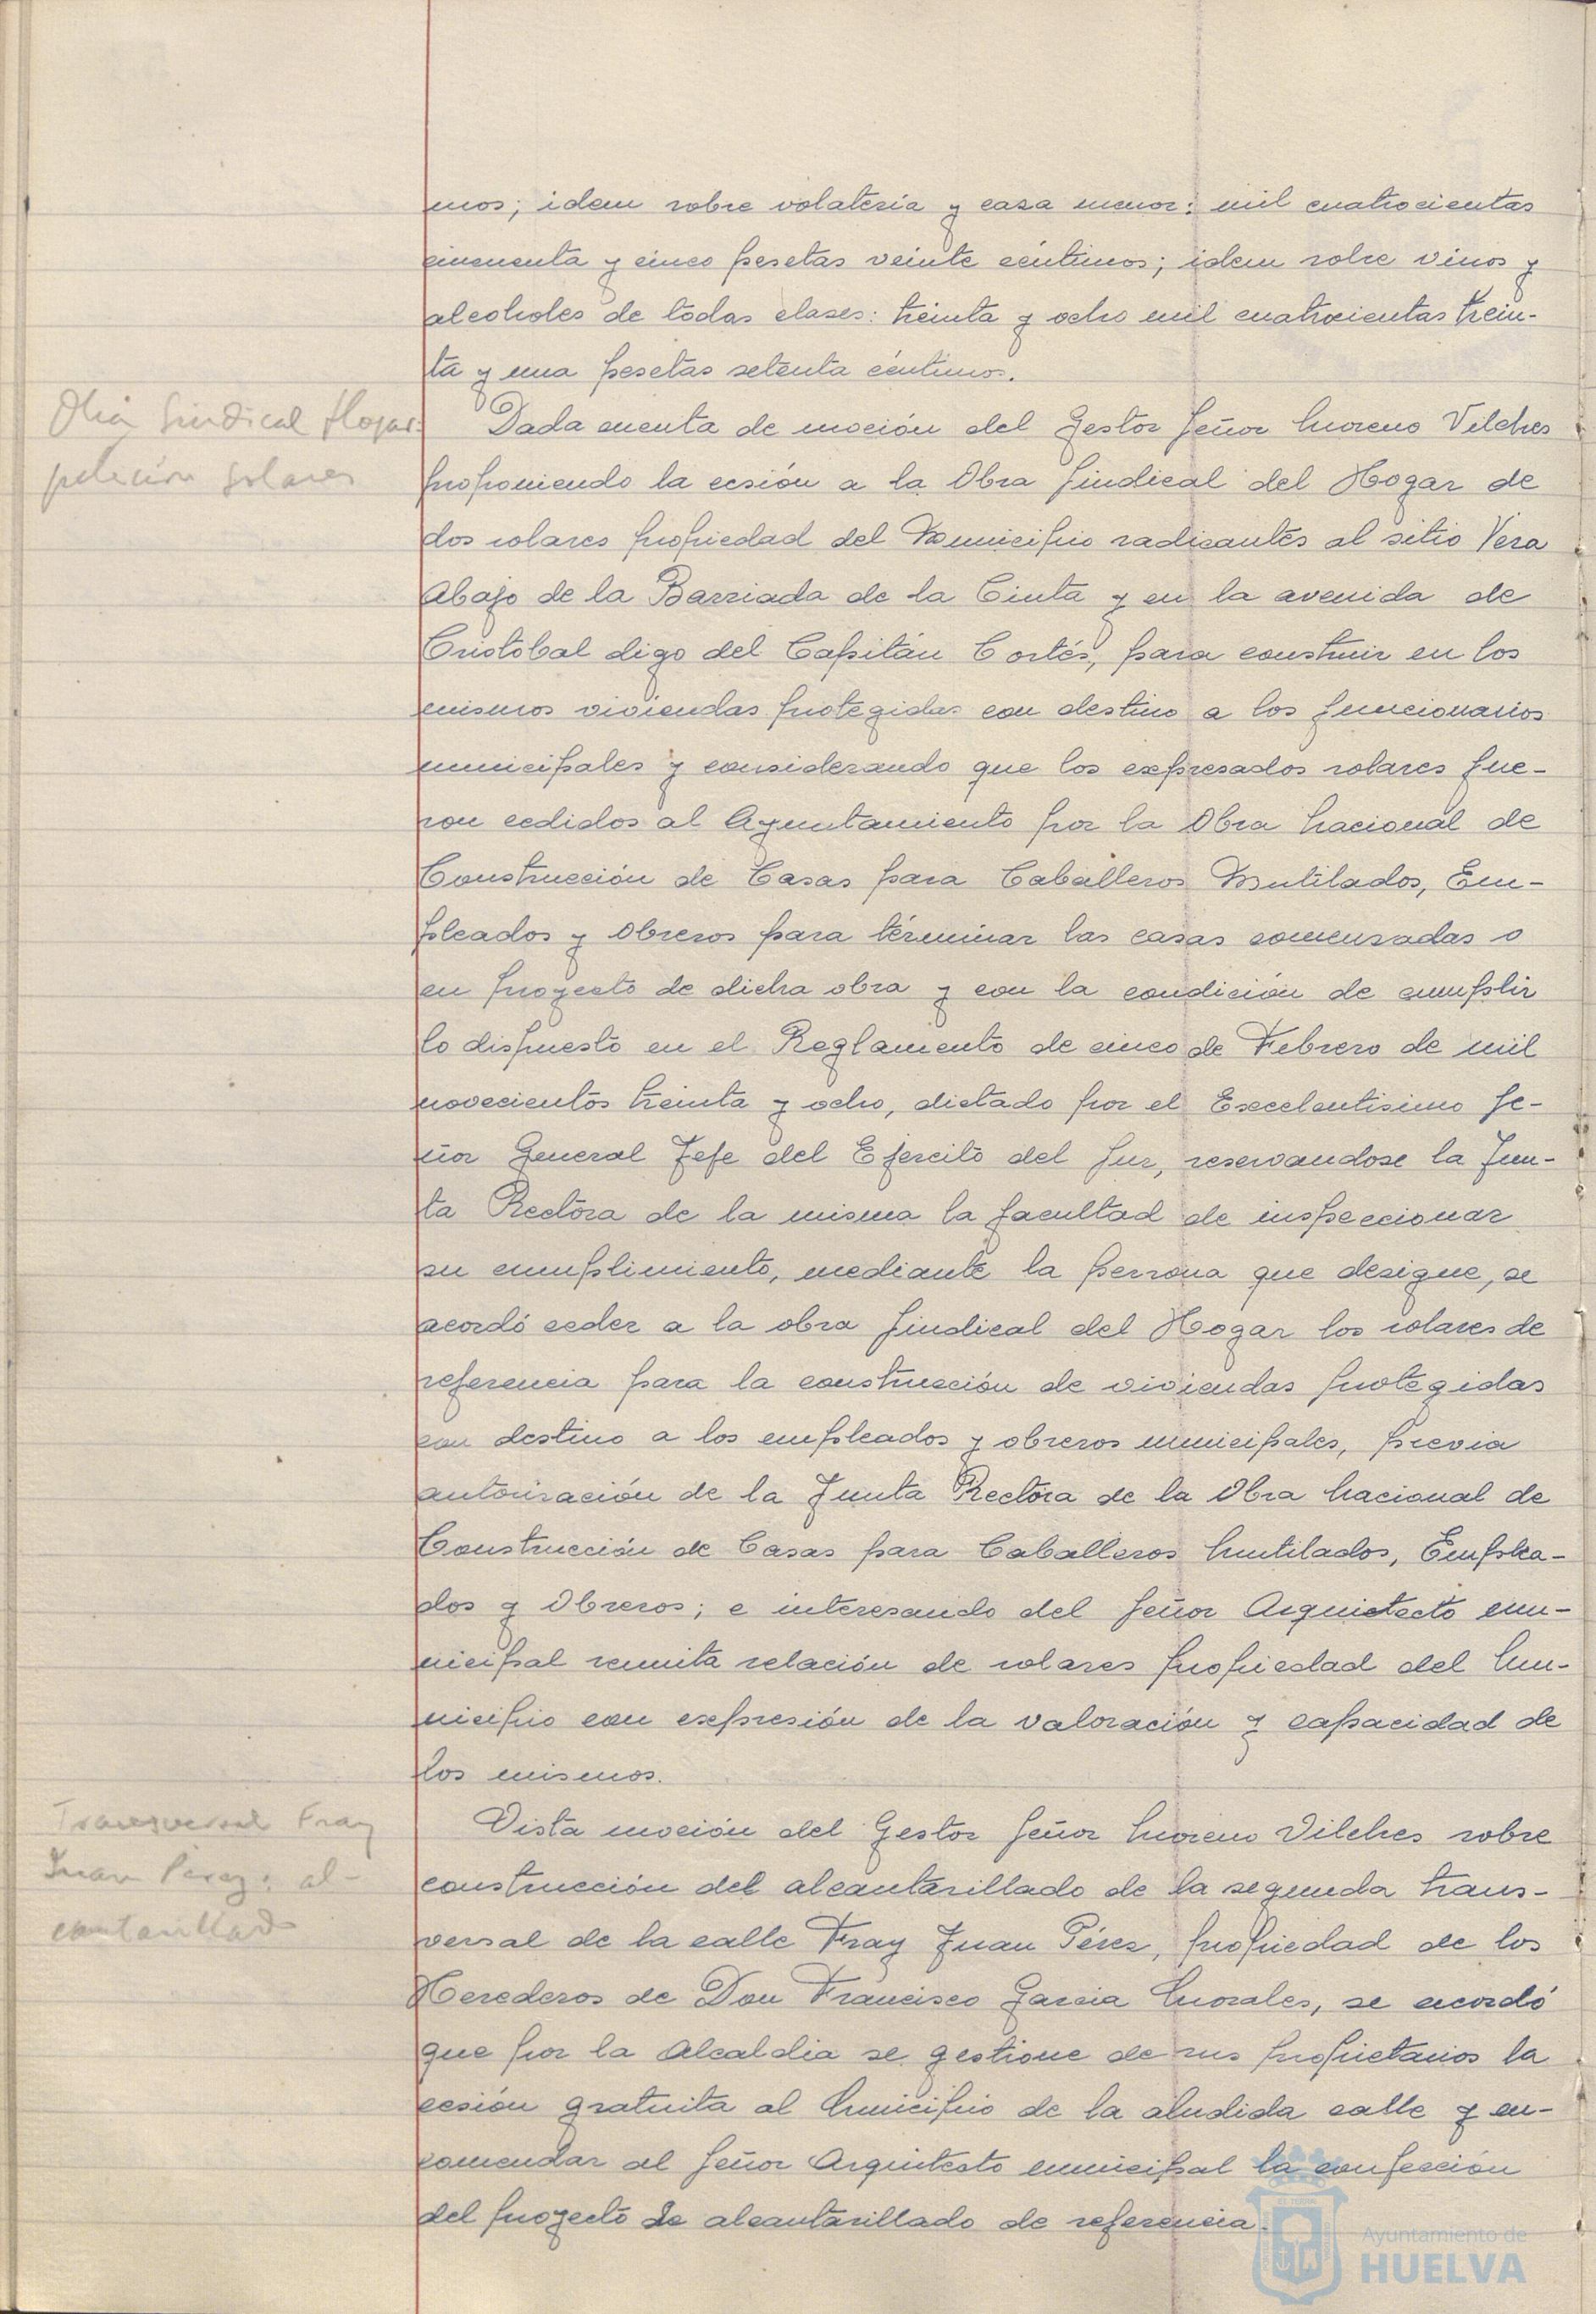 mos; idem sobre volatería y caza menor: mil cuatrocientas
cincuenta y cinco pesetas veinte céntimos; idem sobre vinos y
alcoholes de todas clases: treinta y ocho mil cuatrocientas trein-
ta y una pesetas setenta céntimos.
Obra Sindical Hogar:
petición solares
Dada cuenta de moción del Gestor Señor Moreno Vilches
proponiendo la cesión a la Obra Sindical del Hogar de
dos solares propiedad del Municipio radicantes al sitio Vera
Abajo de la Barriada de la Cinta y en la avenida de
Cristobal digo del Capitán Cortés, para construir en los
mismos viviendas protegidas con destino a los funcionarios
municipales y considerando que los expresados solares fue-
ron cedidos al Ayuntamiento por la Obra Nacional de
Construcción de Casas para Caballeros Mutilados, Em-
pleados y Obreros para términar las casas comenzadas o
en proyecto de dicha obra y con la condición de cumplir
lo dispuesto en el Reglamento de cinco de Febrero de mil
novecientos treinta y ocho, dictado por el Excelentisimo Se-
ñor General Jefe del Ejercito del Sur, reservandose la Jun-
ta Rectora de la misma la facultad de inspeccionar
su cumplimiento, mediante la persona que designe, se
acordó ceder a la obra Sindical del Hogar los solares de
referencia para la construcción de viviendas protegidas
con destino a los empleados y obreros municipales, previa
autorización de la Junta Rectora de la Obra Nacional de
Construcción de Casas para Caballeros Mutilados, Emplea-
dos y Obreros; e interesando del Señor Arquictecto mu-
nicipal remita relación de solares propiedad del Mu-
nicipio con expresión de la valoración y capacidad de
los mismos.
Transversal Fray
Juan Pérez: al-
cantarillado
Vista moción del Gestor Señor Moreno Vilches sobre
construcción del alcantarillado de la segunda trans-
versal de la calle Fray Juan Pérez, propiedad de los
Herederos de Don Francisco García Morales, se acordó
que por la Alcaldia se gestione de sus propietarios la
cesión gratuita al Municipio de la aludida calle y en-
comendar al Señor Arquitecto municipal la confección
del proyecto de alcantarillado de referencia.
Ayuntamiento de
HUELVA